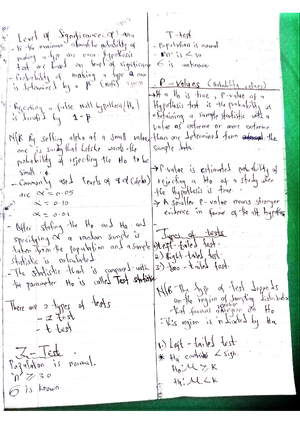 Level of Significance
is the maximum allowable probability of
making a type one error. hypothesis
test are based on level of significance
- Probability of making a type two
is determined by β (beta)
Rejecting a false null hypothesis (H₀)
is denoted by 1-β
N/B By setting alpha at a small value
one is sure that the
probability of rejecting the H₀ to be
small.
- Commonly used levels of α (alpha)
are α = 0.05
α = 0.10
α = 0.01
- After stating the H₀ and Ha and
specifying α a random sample is
taken from the population and a sample
statistic is calculated
- The statistic that is compared with
the parameter H₀ is called Test statistic
There are 2 types of tests
- z test
- t test
Z - Test
Population is normal.
'n' ≥ 30
σ is known
T-test
- Population is normal
- 'n' < 30
σ is unknown
P-Values (Probability values)
→ If a H₀ is true, P-value of a
Hypothesis test is the probability of
obtaining a sample statistic with a
value as extreme or more extreme
than one determined from
sample data.
→ P-value is estimated probability of
rejecting a H₀ of a study when
the hypothesis is true.
→ A smaller P-value means stronger
evidence in favor of the alt hypothesis
Types of tests
1) Left-tailed test.
2) Right tailed test.
3) two-tailed test
N/B - The type of test depends
on the region of sampling distribution
that favours rejection of H₀
- This region is indicated by Ha
1) Left-tailed test
* Ha contains < sign.
H₀: μ ≥ K
Ha: μ < K